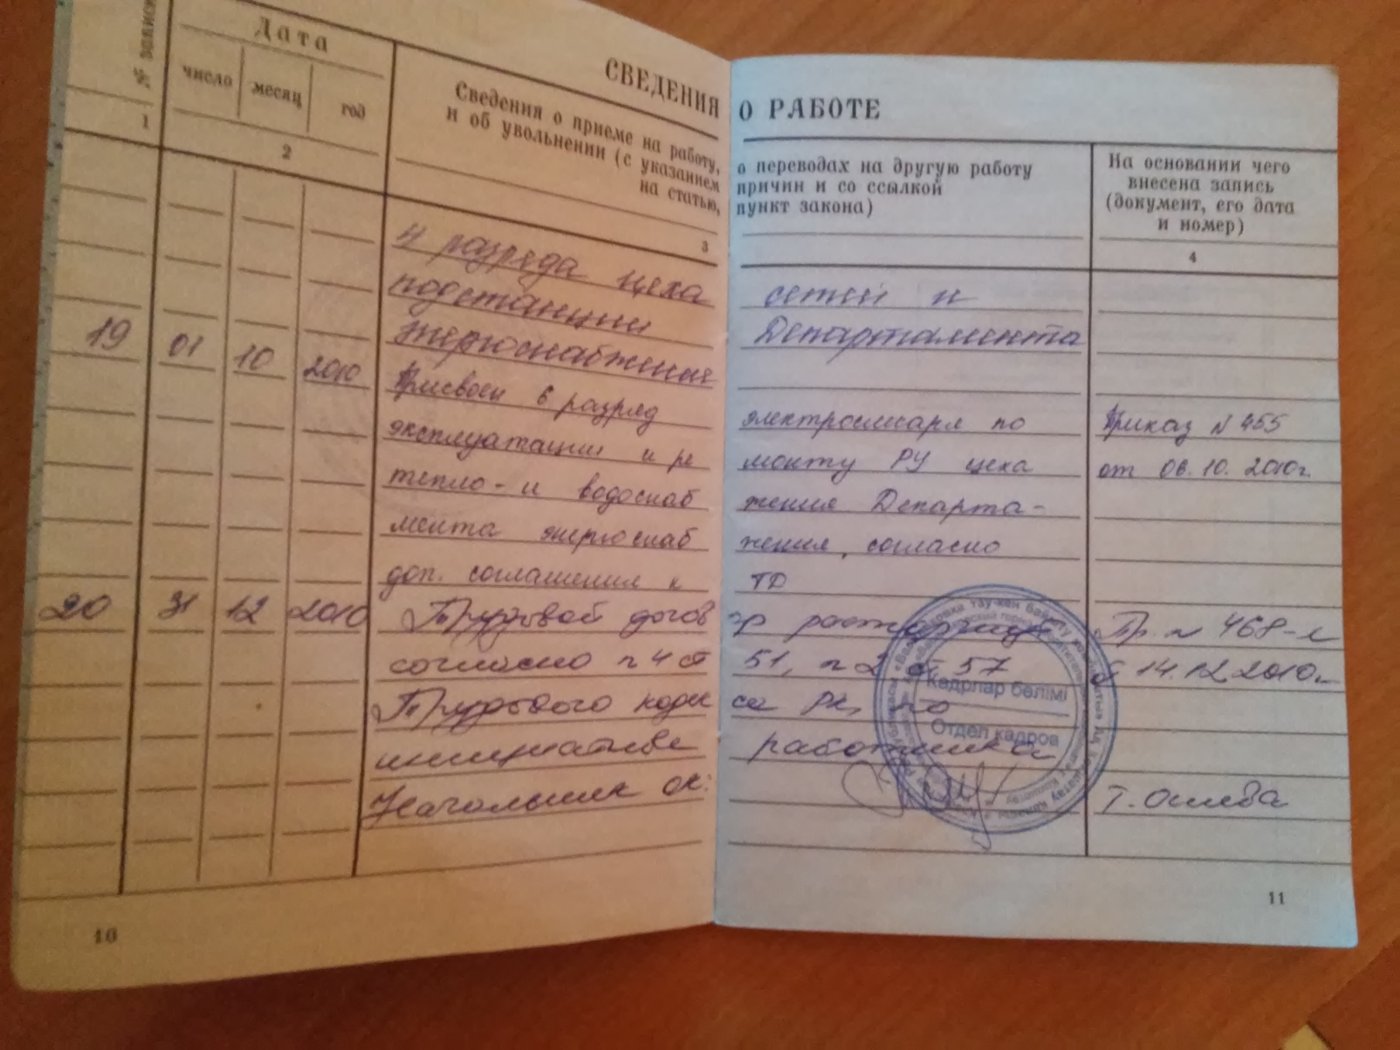 СВЕДЕНИЯ О РАБОТЕ
№ записи
Дата
число месяц год
Сведения о приеме на работу, о переводах на другую работу
и об увольнении (с указанием причин и со ссылкой
на статью, пункт закона)
На основании чего
внесена запись
(документ, его дата
и номер)
1 2 3 4
4 разряда цеха сетей и
подстанции Департамента
энергоснабжения
19 01 10 2010 Присвоен 6 разряд электрослесаря по Приказ № 455
эксплуатации и ремонту РУ цеха от 06.10.2010г.
тепло- и водоснабжения Департа-
мента энергоснабжения, согласно
доп. соглашения к ТД
20 31 12 2010 Трудовой договор расторгнут Пр. № 468-л
согласно п 4 ст 51, п 2 ст 57 14.12.2010г.
Трудового кодекса РК, по
инициативе работника
Начальник ок: Т.
Кадрлар бөлімі
Отдел кадров
10 11